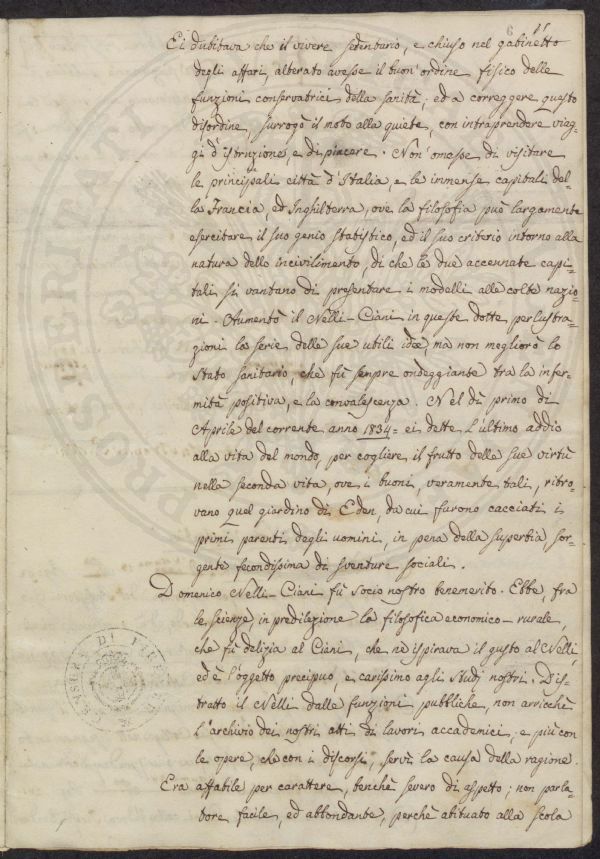 Ei dubitava che il vivere sedentario, e chiuso nel gabinetto
degli affari, alterato avesse il buon' ordine fisico delle
funzioni conservatrici della sanità; ed a correggere questo
disordine, surrogò il moto alla quiete, con intraprendere viag=
gi d'istruzione, e di piacere. Non omesse di visitare
le principali città d'Italia, e le immense capitali del=
la Francia, ed Inghilterra, ove la filosofia può largamente
esercitare il suo genio statistico, ed il suo criterio intorno alla
natura dello incivilimento, di che le due accennate capi=
tali si vantano di presentare i modelli alle colte nazio=
ni. Aumentò il Nelli-Ciani in queste dotte perlustra=
zioni la serie delle sue utili idee, ma non megliorò lo
stato sanitario, che fù sempre ondeggiante tra la infer=
mità positiva, e la convalescenza. Nel dì primo di
Aprile del corrente anno 1834= ei dette l'ultimo addio
alla vita del mondo, per cogliere il frutto della sue virtù
nella seconda vita, ove i buoni, veramente tali, ritro=
vano quel giardino di Eden, da cui furono cacciati i
primi parenti degli uomini, in pena della superbia, sor=
gente fecondissima di sventure sociali.
Domenico Nelli-Ciani fù socio nostro benemerito. Ebbe, fra
le scienze, in predilezione la filosofica economico-rurale,
che fù delizia al Ciani, che ne ispirava il gusto al Nelli,
ed è l'oggetto precipuo, e carissimo agli studj nostri. Dis=
tratto il Nelli dalle funzioni pubbliche, non arricchì
l'archivio dei nostri atti di lavori accademici; e più con
le opere, che con i discorsi, servì la causa della ragione.
Era affabile per carattere, benchè severo di aspetto; non parla=
tore facile, ed abbondante, perchè abituato alla scola